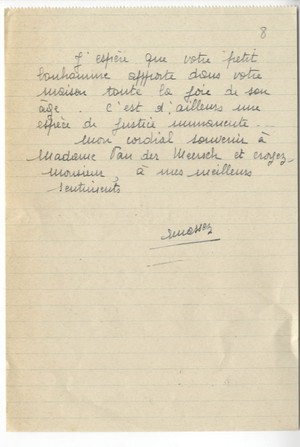 8
J'espère que votre petit
bonhomme apporte dans votre
maison toute la joie de son
âge. C'est d'ailleurs une
espèce de justice immanente...
Mon cordial souvenir à
Madame Van der Meersch et croyez,
Monsieur, à mes meilleurs
sentiments